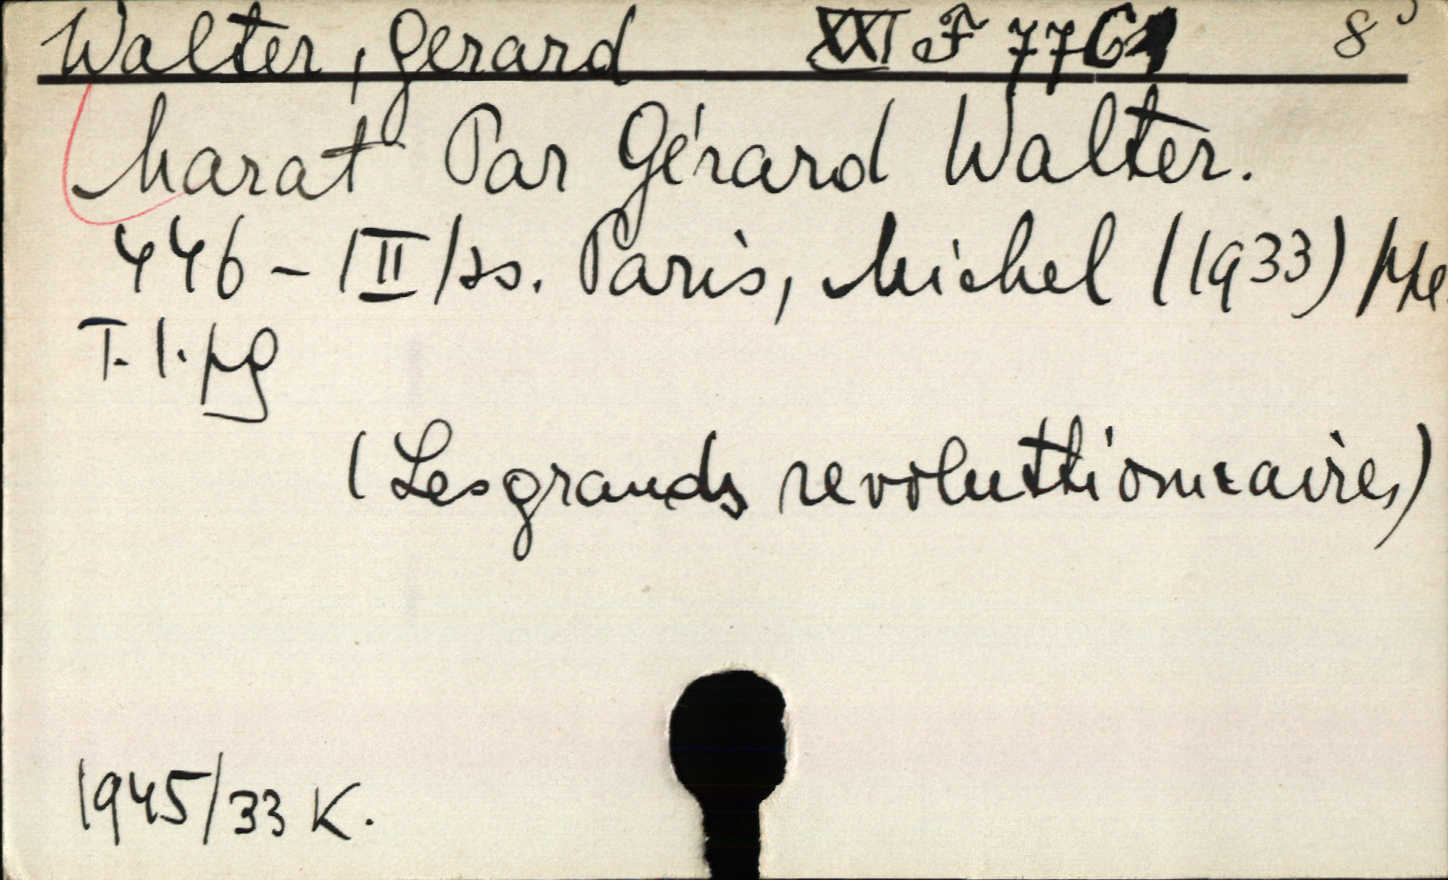 Walter, Gerard XXI F 77 8°
Marat Par Gérard Walter.
446 - |II| ss. Paris, Michel (1933)
T. l. pg
(Les grands revoluttionnaires)
1945/33 K.